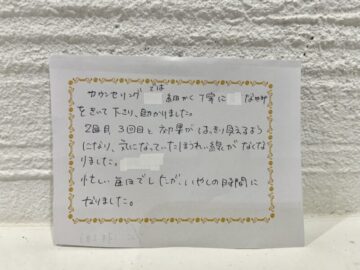 カウンセリングでは 細かく丁寧に
をきいて下さり、助かりました。
2回目、3回目と効果がはっきり見えるよう
になり、気になっていたほうれい線がなくな
りました。
忙しい毎日でしたが、いやしの時間に
なりました。